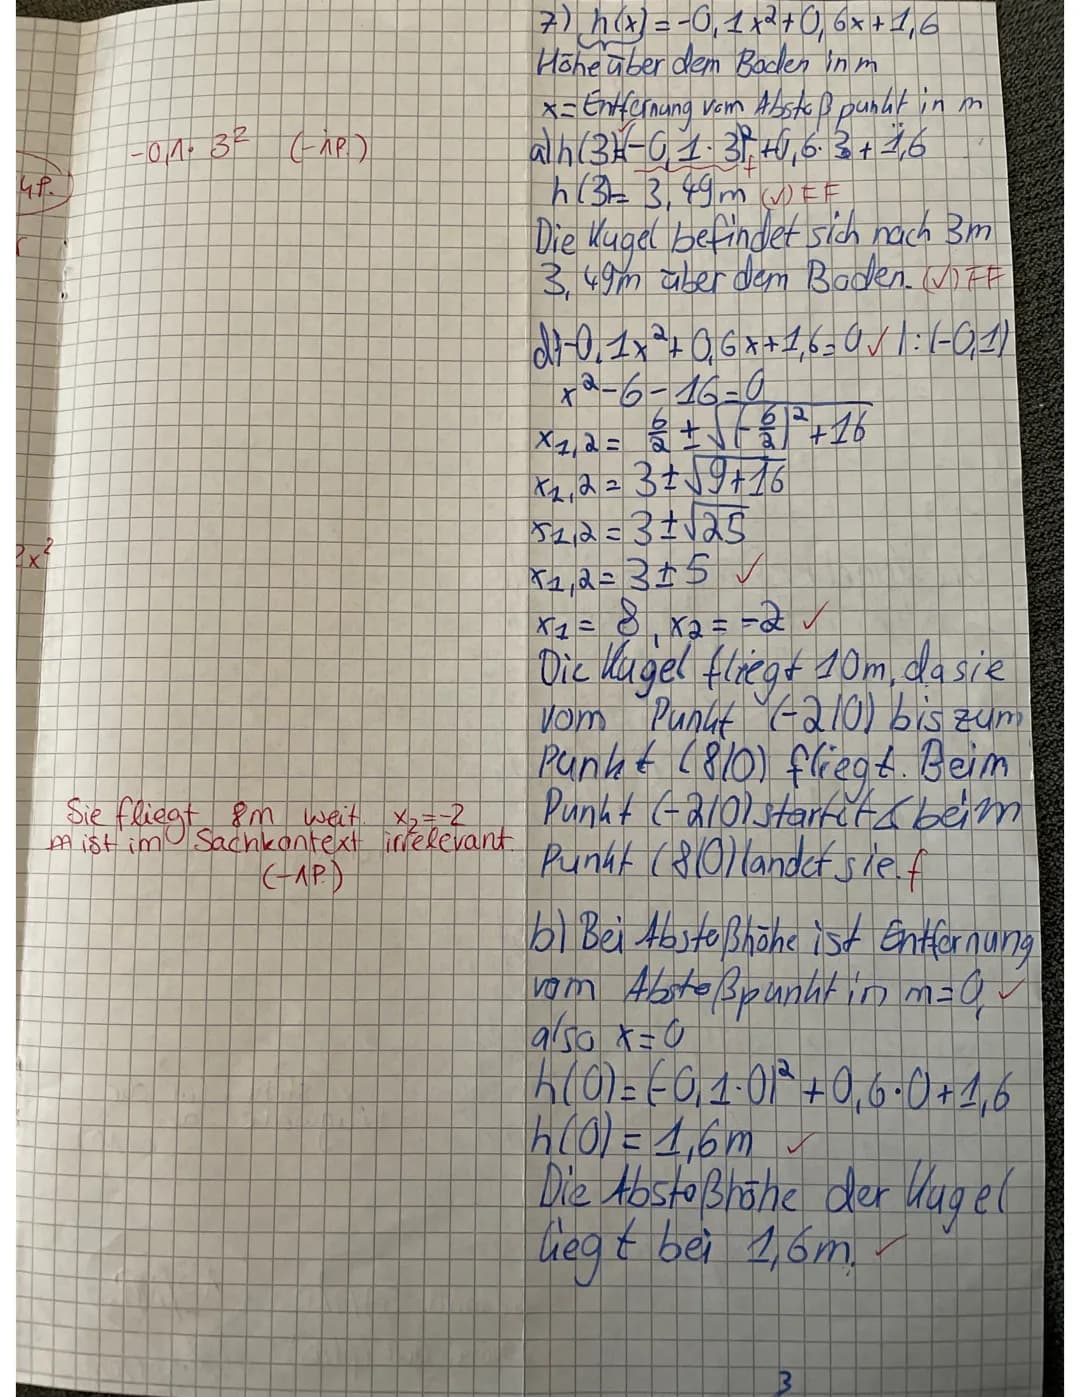 7) h(x) = -0,1x²+0,6x+1,6
Höhe über dem Boden in m
x = Entfernung vom Abstoßpunkt in m
-0,1 · 3² (-1P.)
a) h(3)=(-0,1·3)²+0,6·3+1,6 f
4P.
h(3)= 3,49m (√) FF
Die Kugel befindet sich nach 3m
3,49m über dem Boden. (√) FF
d) -0,1x²+0,6x+1,6=0 √ |:(-0,1)
x²-6-16=0
x1,2 = 6/2 ± √(-6/2)²+16
x1,2 = 3±√9+16
x1,2 = 3±√25
x²
x1,2 = 3±5 √
x1 = 8, x2 = -2 √
Die Kugel fliegt 10m, da sie
vom Punkt (-2|0) bis zum
Punkt (8|0) fliegt. Beim
Sie fliegt 8m weit. x2=-2
Punkt (-2|0) startet & beim
m ist im Sachkontext irrelevant
(-1P.)
Punkt (8|0) landet sie. f
b) Bei Abstoßhöhe ist Entfernung
vom Abstoßpunkt in m=0, √
also x=0
h(0)=(-0,1·0)²+0,6·0+1,6
h(0) = 1,6m √
Die Abstoßhöhe der Kugel
liegt bei 1,6m. √
3